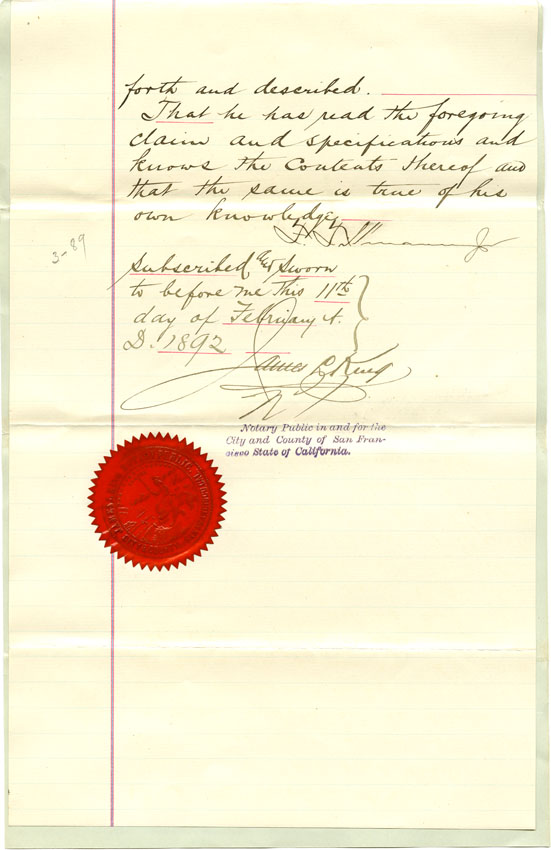 forth and described.
That he has read the foregoing
claim and specifications and
knows the Contents thereof and
that the same is true of his
own knowledge
3-89
Subscribed and Sworn
to before me This 11th
day of February A.
D. 1892
James C. King
N
Notary Public in and for the
City and County of San Fran-
cisco State of California.